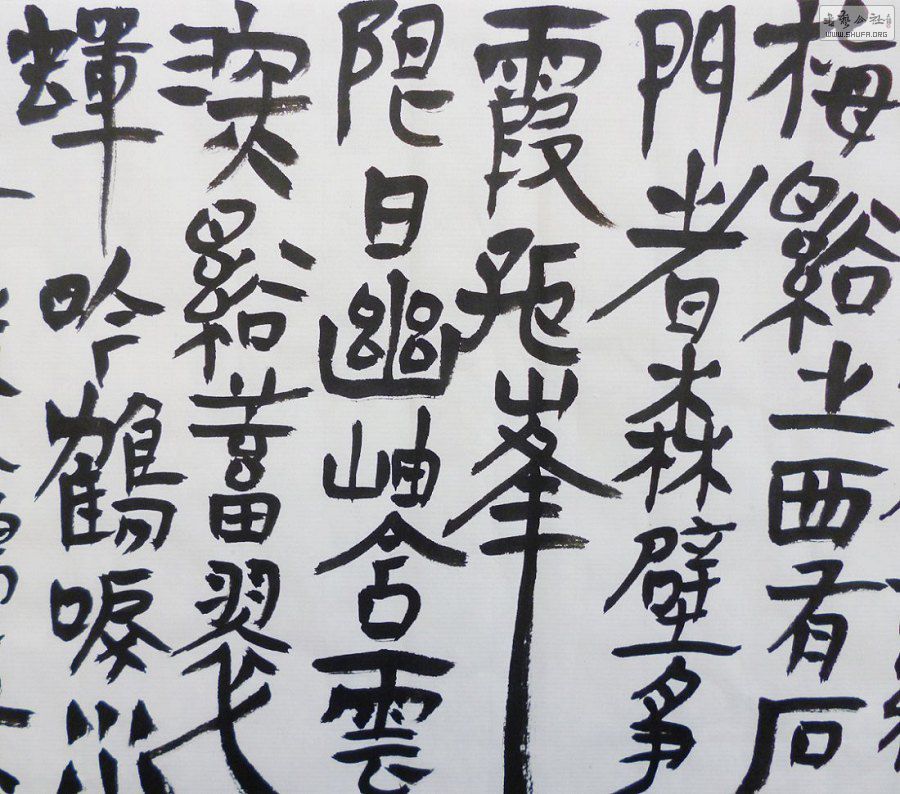 梅谿之西有石
門者森壁爭
霞孤峯
限日幽岫含雲
深谿蓄翠
蟬吟鶴唳水
書藝公社
WWW.SHUFA.ORG